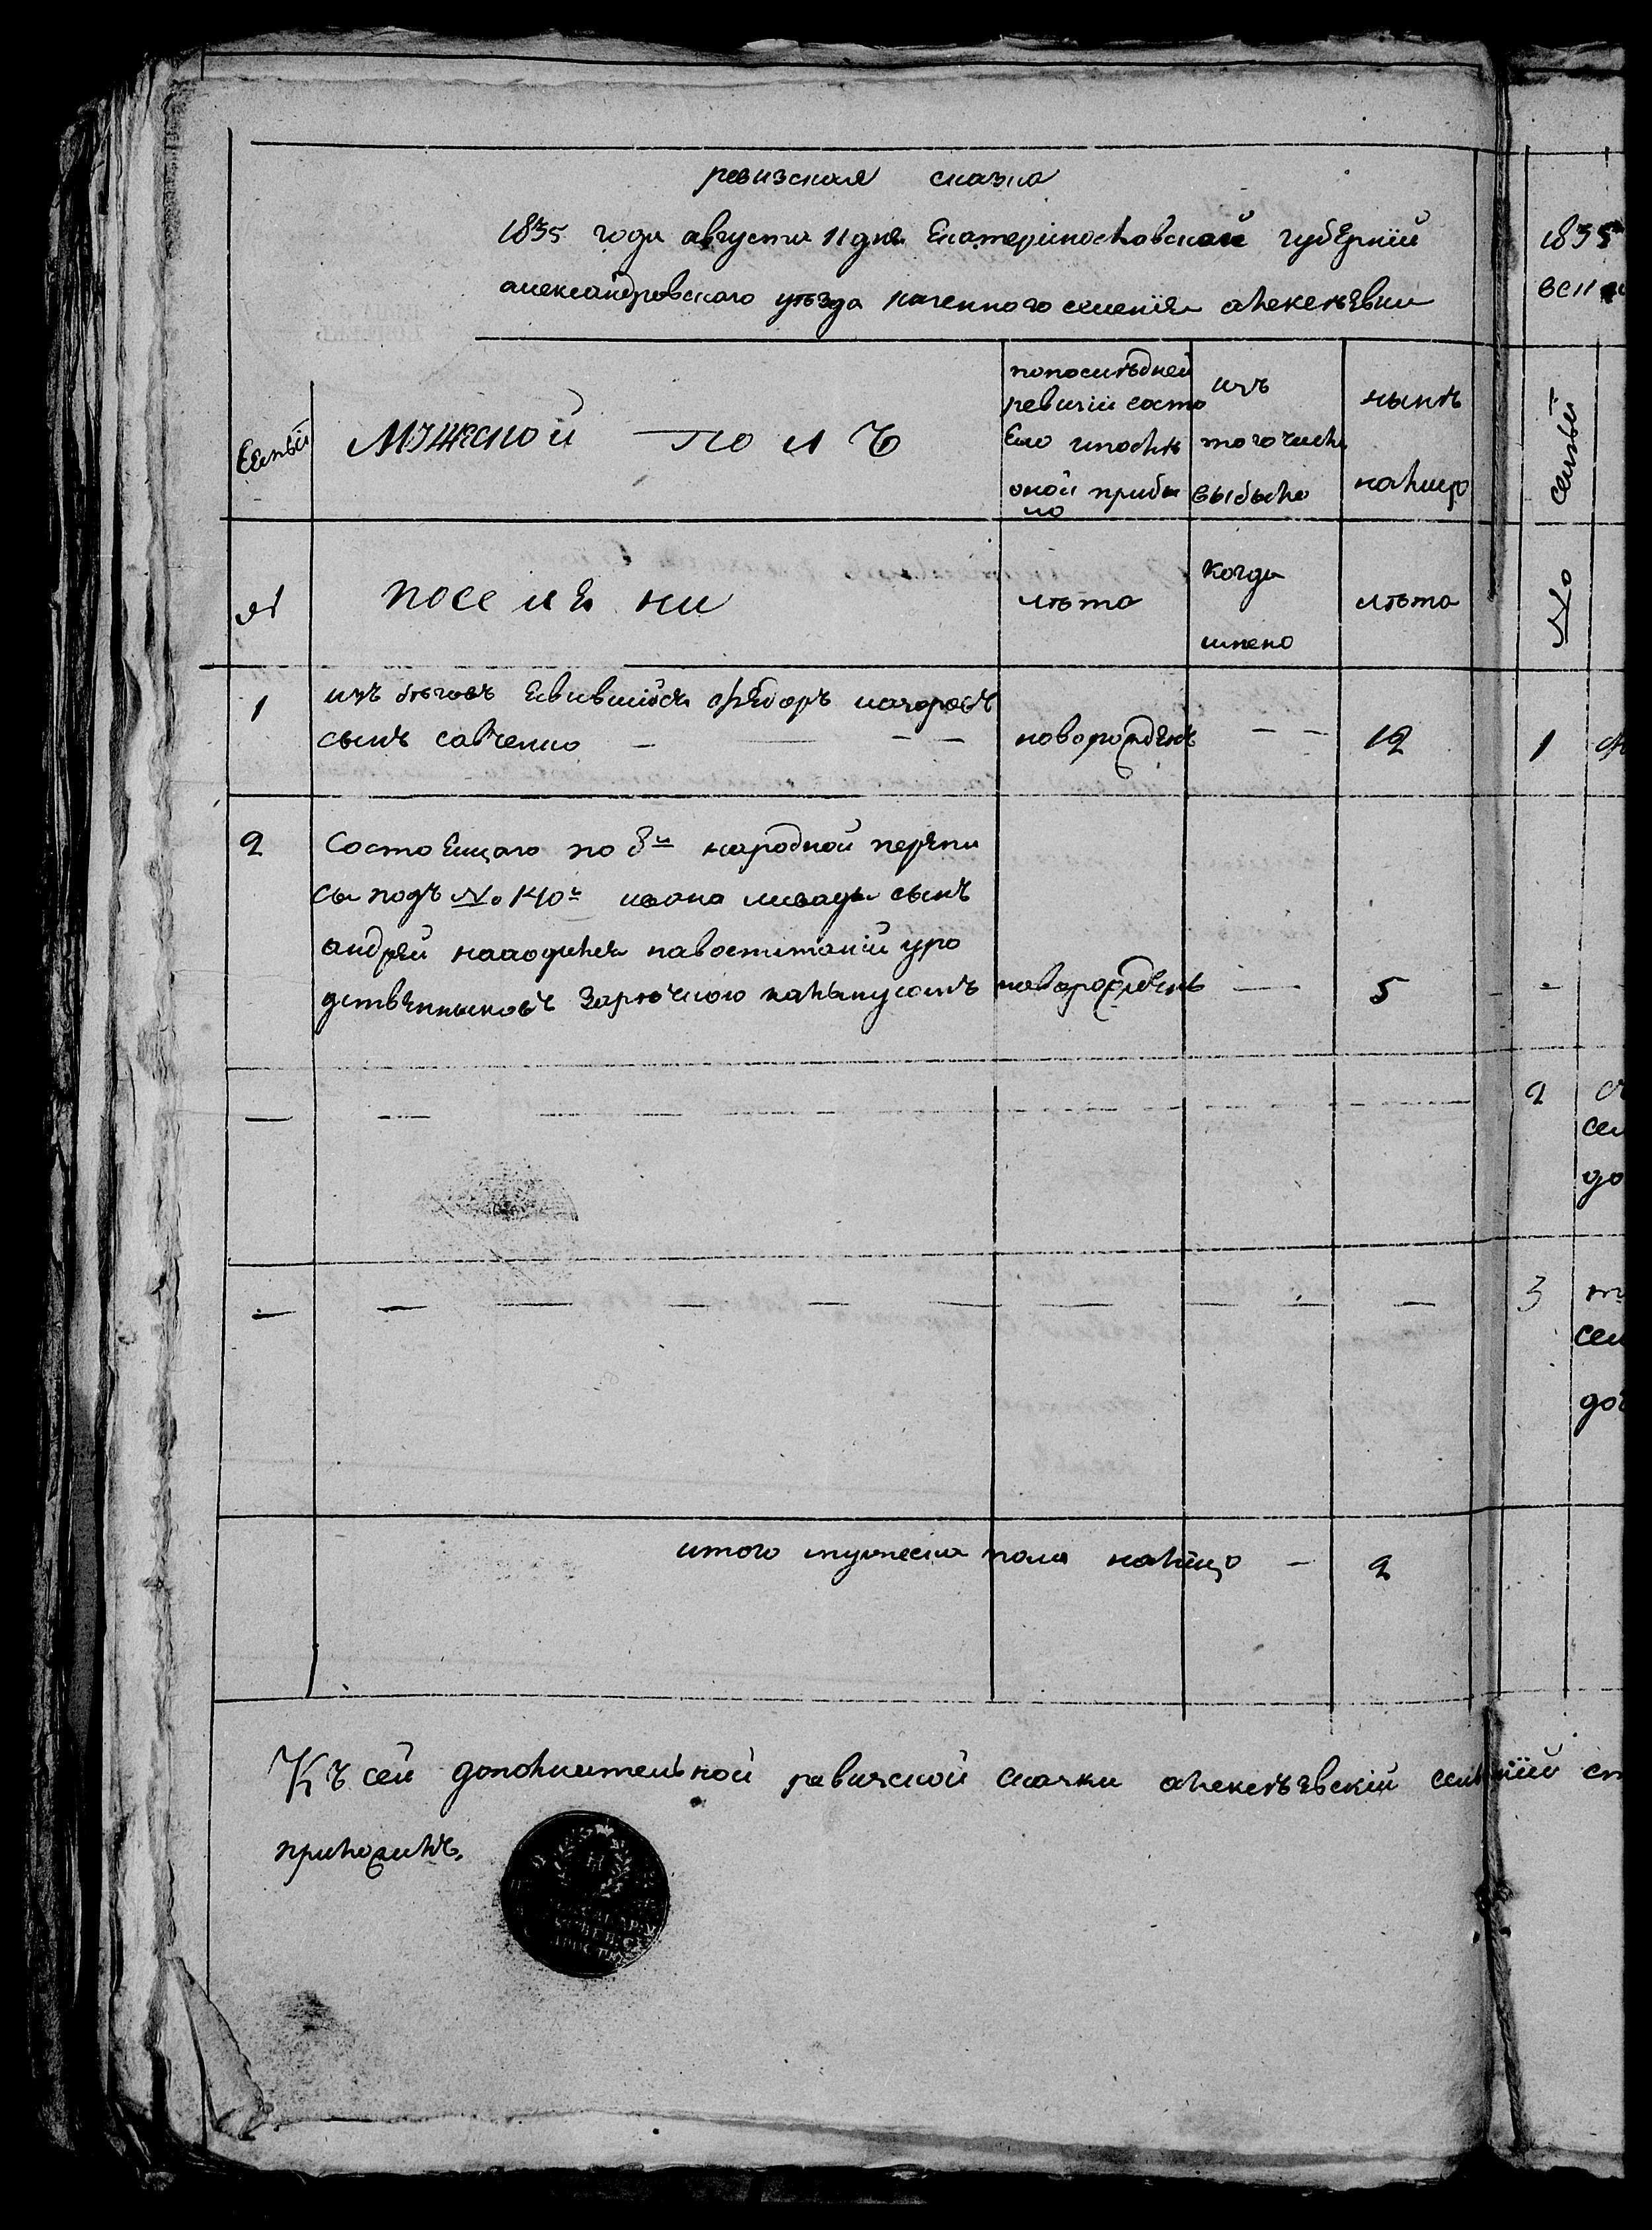 ревизская сказка
1835 года августа 11 дня Екатеринославской губернии
александровскаго уѣзда казенного селения алексѣевки
семьи
Мужеской полъ
попослѣдней
ревизии состо
яло ипослѣ
оной прибы
ло
изъ
того числа
выбыло
нынѣ
налицо
№
поселяни
лѣта
когда
имено
лѣта
1
изъ бѣговъ Евившийся федоръ назаровъ
сынъ савченко
новорожденъ
12
2
Состоящаго по 8й народной перепи
си подъ № 140м ивана сынъ
андрей находился навоспитании у ро
дственниковъ
новорожденъ
5
итого мужеска пола налицо – 2
Къ сей дополнительной ревизской сказки алексѣевский
приложилъ.
1835
семьи
№
1
2
се
до
3
се
доч